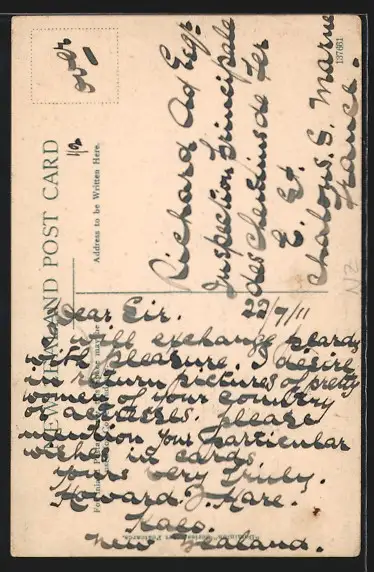 over
NEW ZEALAND POST CARD
Address to be Written Here.
Richard Ad Esqr
Inspection Principale
des Chemins de Fer
E. Et
Chalons. S. Marne
France.
137661
NZ
22/7/11
Dear Sir.
I will exchange p. cards
with pleasure. I desire
in return pictures of pretty
women of your country
or actresses. please
mention your particular
wishes in cards
yours very truly.
Howard J. Hare.
Kaeo.
New Zealand.